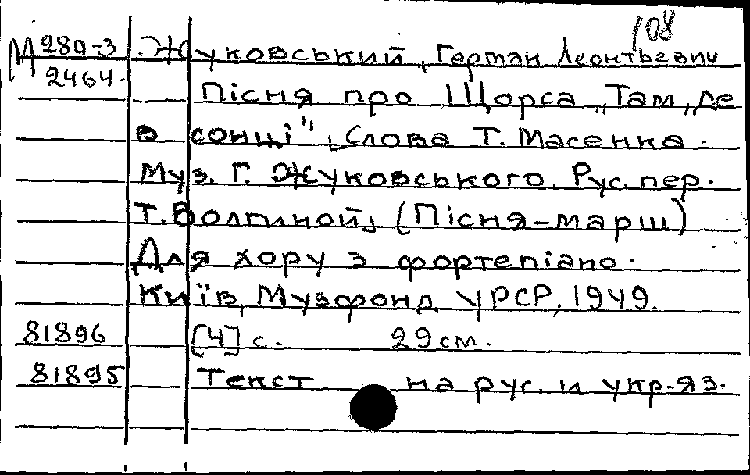 108
М 280-3 Жуковський, Герман Леонтьевич
2464. Пісня про Щорса „Там, де
в сонці". Слова Т. Масенка.
Муз. Г. Жуковського. Рус. пер.
Т. Волгиной, (Пісня-марш)
Для хору з фортепіано.
Київ, Музфонд УРСР, 1949.
81896 [4] с. 29 см.
81895 Текст на рус. и укр. яз.